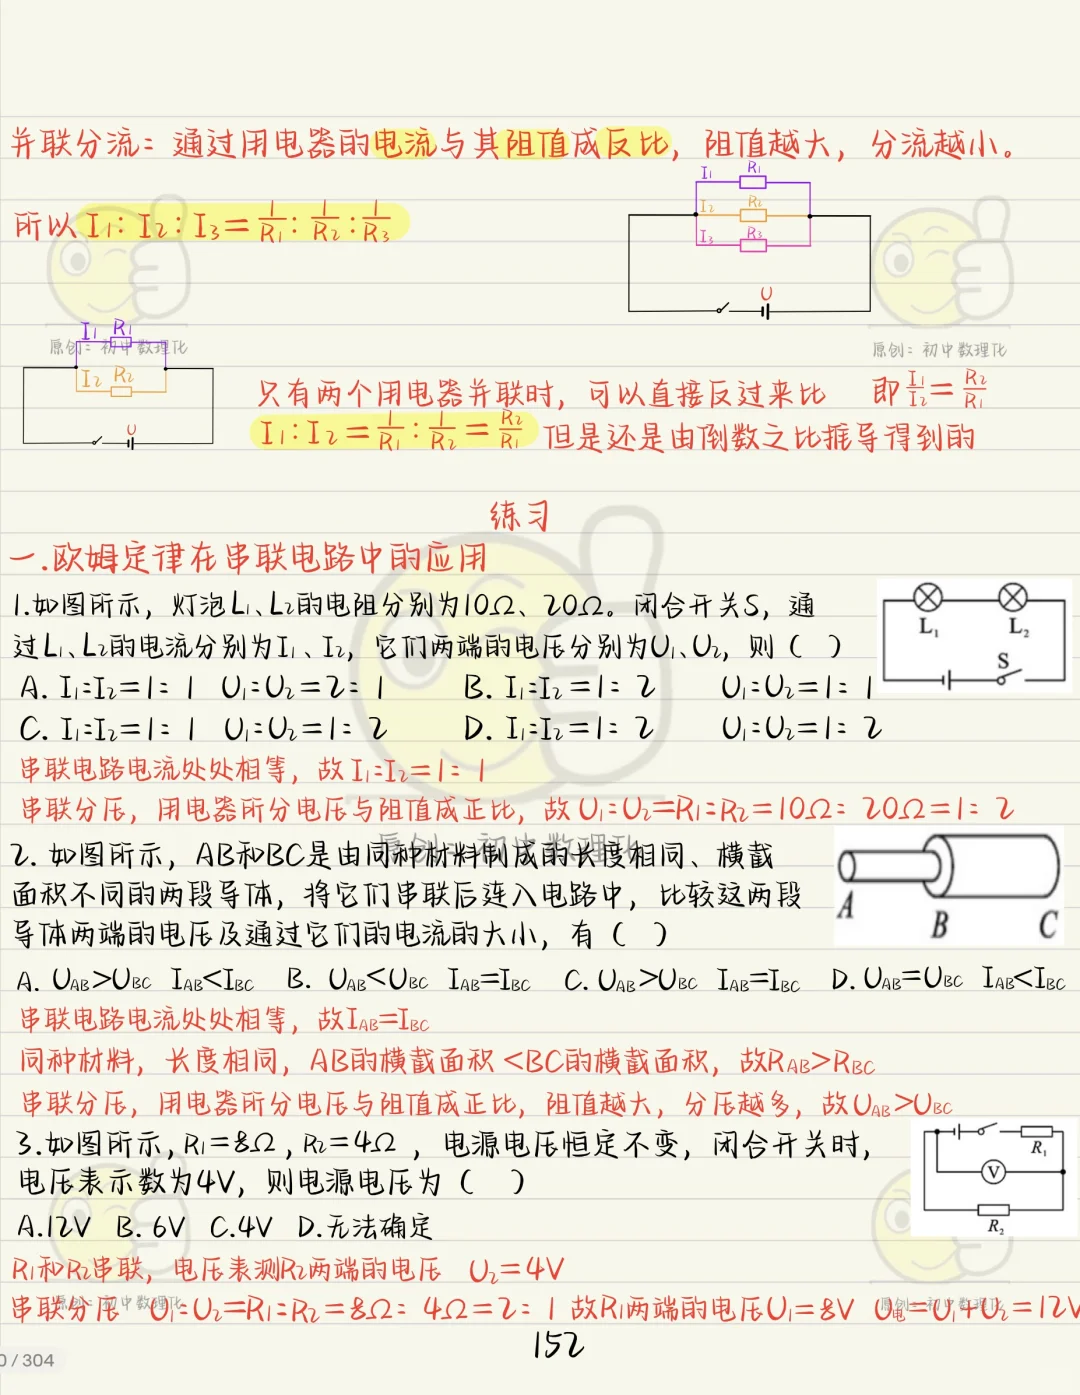 并联分流：通过用电器的电流与其阻值成反比，阻值越大，分流越小。
所以 I₁：I₂：I₃＝1/R₁：1/R₂：1/R₃
I₁ R₁
I₂ R₂
I₃ R₃
U
原创：初中数理化
原创：初中数理化
I₁ R₁
I₂ R₂
U
只有两个用电器并联时，可以直接反过来比 即I₁/I₂＝R₂/R₁
I₁：I₂＝1/R₁：1/R₂＝R₂/R₁ 但是还是由倒数之比推导得到的
练习
一.欧姆定律在串联电路中的应用
1.如图所示，灯泡L₁、L₂的电阻分别为10Ω、20Ω。闭合开关S，通
过L₁、L₂的电流分别为I₁、I₂，它们两端的电压分别为U₁、U₂，则（ ）
L₁ L₂
S
A. I₁：I₂＝1：1 U₁：U₂＝2：1 B. I₁：I₂＝1：2 U₁：U₂＝1：1
C. I₁：I₂＝1：1 U₁：U₂＝1：2 D. I₁：I₂＝1：2 U₁：U₂＝1：2
串联电路电流处处相等，故I₁：I₂＝1：1
串联分压，用电器所分电压与阻值成正比，故U₁：U₂＝R₁：R₂＝10Ω：20Ω＝1：2
原创：初中数理化
2. 如图所示，AB和BC是由同种材料制成的长度相同、横截
面积不同的两段导体，将它们串联后连入电路中，比较这两段
导体两端的电压及通过它们的电流的大小，有（ ）
A B C
A. UAB>UBC IAB<IBC B. UAB<UBC IAB=IBC C. UAB>UBC IAB=IBC D. UAB=UBC IAB<IBC
串联电路电流处处相等，故IAB=IBC
同种材料，长度相同，AB的横截面积<BC的横截面积，故RAB>RBC
串联分压，用电器所分电压与阻值成正比，阻值越大，分压越多，故UAB>UBC
3.如图所示,R₁＝8Ω,R₂＝4Ω，电源电压恒定不变，闭合开关时，
电压表示数为4V，则电源电压为（ ）
R₁
V
R₂
A.12V B. 6V C.4V D.无法确定
R₁和R₂串联，电压表测R₂两端的电压 U₂＝4V
串联分压 U₁：U₂＝R₁：R₂＝8Ω：4Ω＝2：1 故R₁两端的电压U₁＝8V U电＝U₁+U₂＝12V
原创：初中数理化
原创：初中数理化
152
0 / 304